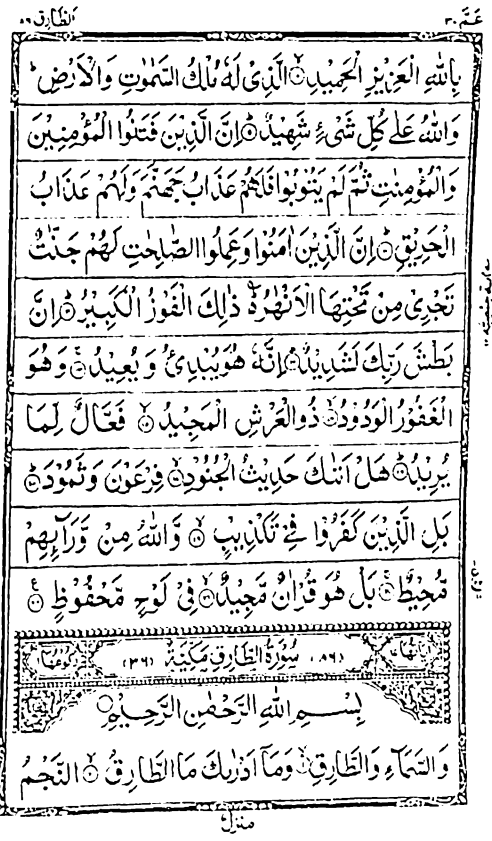 عَمَّ ٣٠
الطَّارِق ٨٦
بِاللّٰهِ الْعَزِيْزِ الْحَمِيْدِ ۙ الَّذِىْ لَهٗ مُلْكُ السَّمٰوٰتِ وَالْاَرْضِ ؕ
وَاللّٰهُ عَلٰى كُلِّ شَىْءٍ شَهِيْدٌ ؕ اِنَّ الَّذِيْنَ فَتَنُوا الْمُؤْمِنِيْنَ
وَالْمُؤْمِنٰتِ ثُمَّ لَمْ يَتُوْبُوْا فَلَهُمْ عَذَابُ جَهَنَّمَ وَلَهُمْ عَذَابُ
الْحَرِيْقِ ؕ اِنَّ الَّذِيْنَ اٰمَنُوْا وَعَمِلُوا الصّٰلِحٰتِ لَهُمْ جَنّٰتٌ
تَجْرِىْ مِنْ تَحْتِهَا الْاَنْهٰرُ ؕ ذٰلِكَ الْفَوْزُ الْكَبِيْرُ ؕ اِنَّ
بَطْشَ رَبِّكَ لَشَدِيْدٌ ؕ اِنَّهٗ هُوَ يُبْدِئُ وَيُعِيْدُ ۚ وَهُوَ
الْغَفُوْرُ الْوَدُوْدُ ۙ ذُو الْعَرْشِ الْمَجِيْدُ ۙ فَعَّالٌ لِّمَا
يُرِيْدُ ؕ هَلْ اَتٰىكَ حَدِيْثُ الْجُنُوْدِ ۙ فِرْعَوْنَ وَثَمُوْدَ ؕ
بَلِ الَّذِيْنَ كَفَرُوْا فِىْ تَكْذِيْبٍ ۙ وَّاللّٰهُ مِنْ وَّرَآئِهِمْ
مُّحِيْطٌ ۚ بَلْ هُوَ قُرْاٰنٌ مَّجِيْدٌ ۙ فِىْ لَوْحٍ مَّحْفُوْظٍ
(٨٦) سُوْرَةُ الطَّارِقِ مَكِّيَّةٌ (٣٦)
بِسْمِ اللّٰهِ الرَّحْمٰنِ الرَّحِيْمِ
وَالسَّمَآءِ وَالطَّارِقِ ۙ وَمَآ اَدْرٰىكَ مَا الطَّارِقُ ۙ النَّجْمُ
منزل